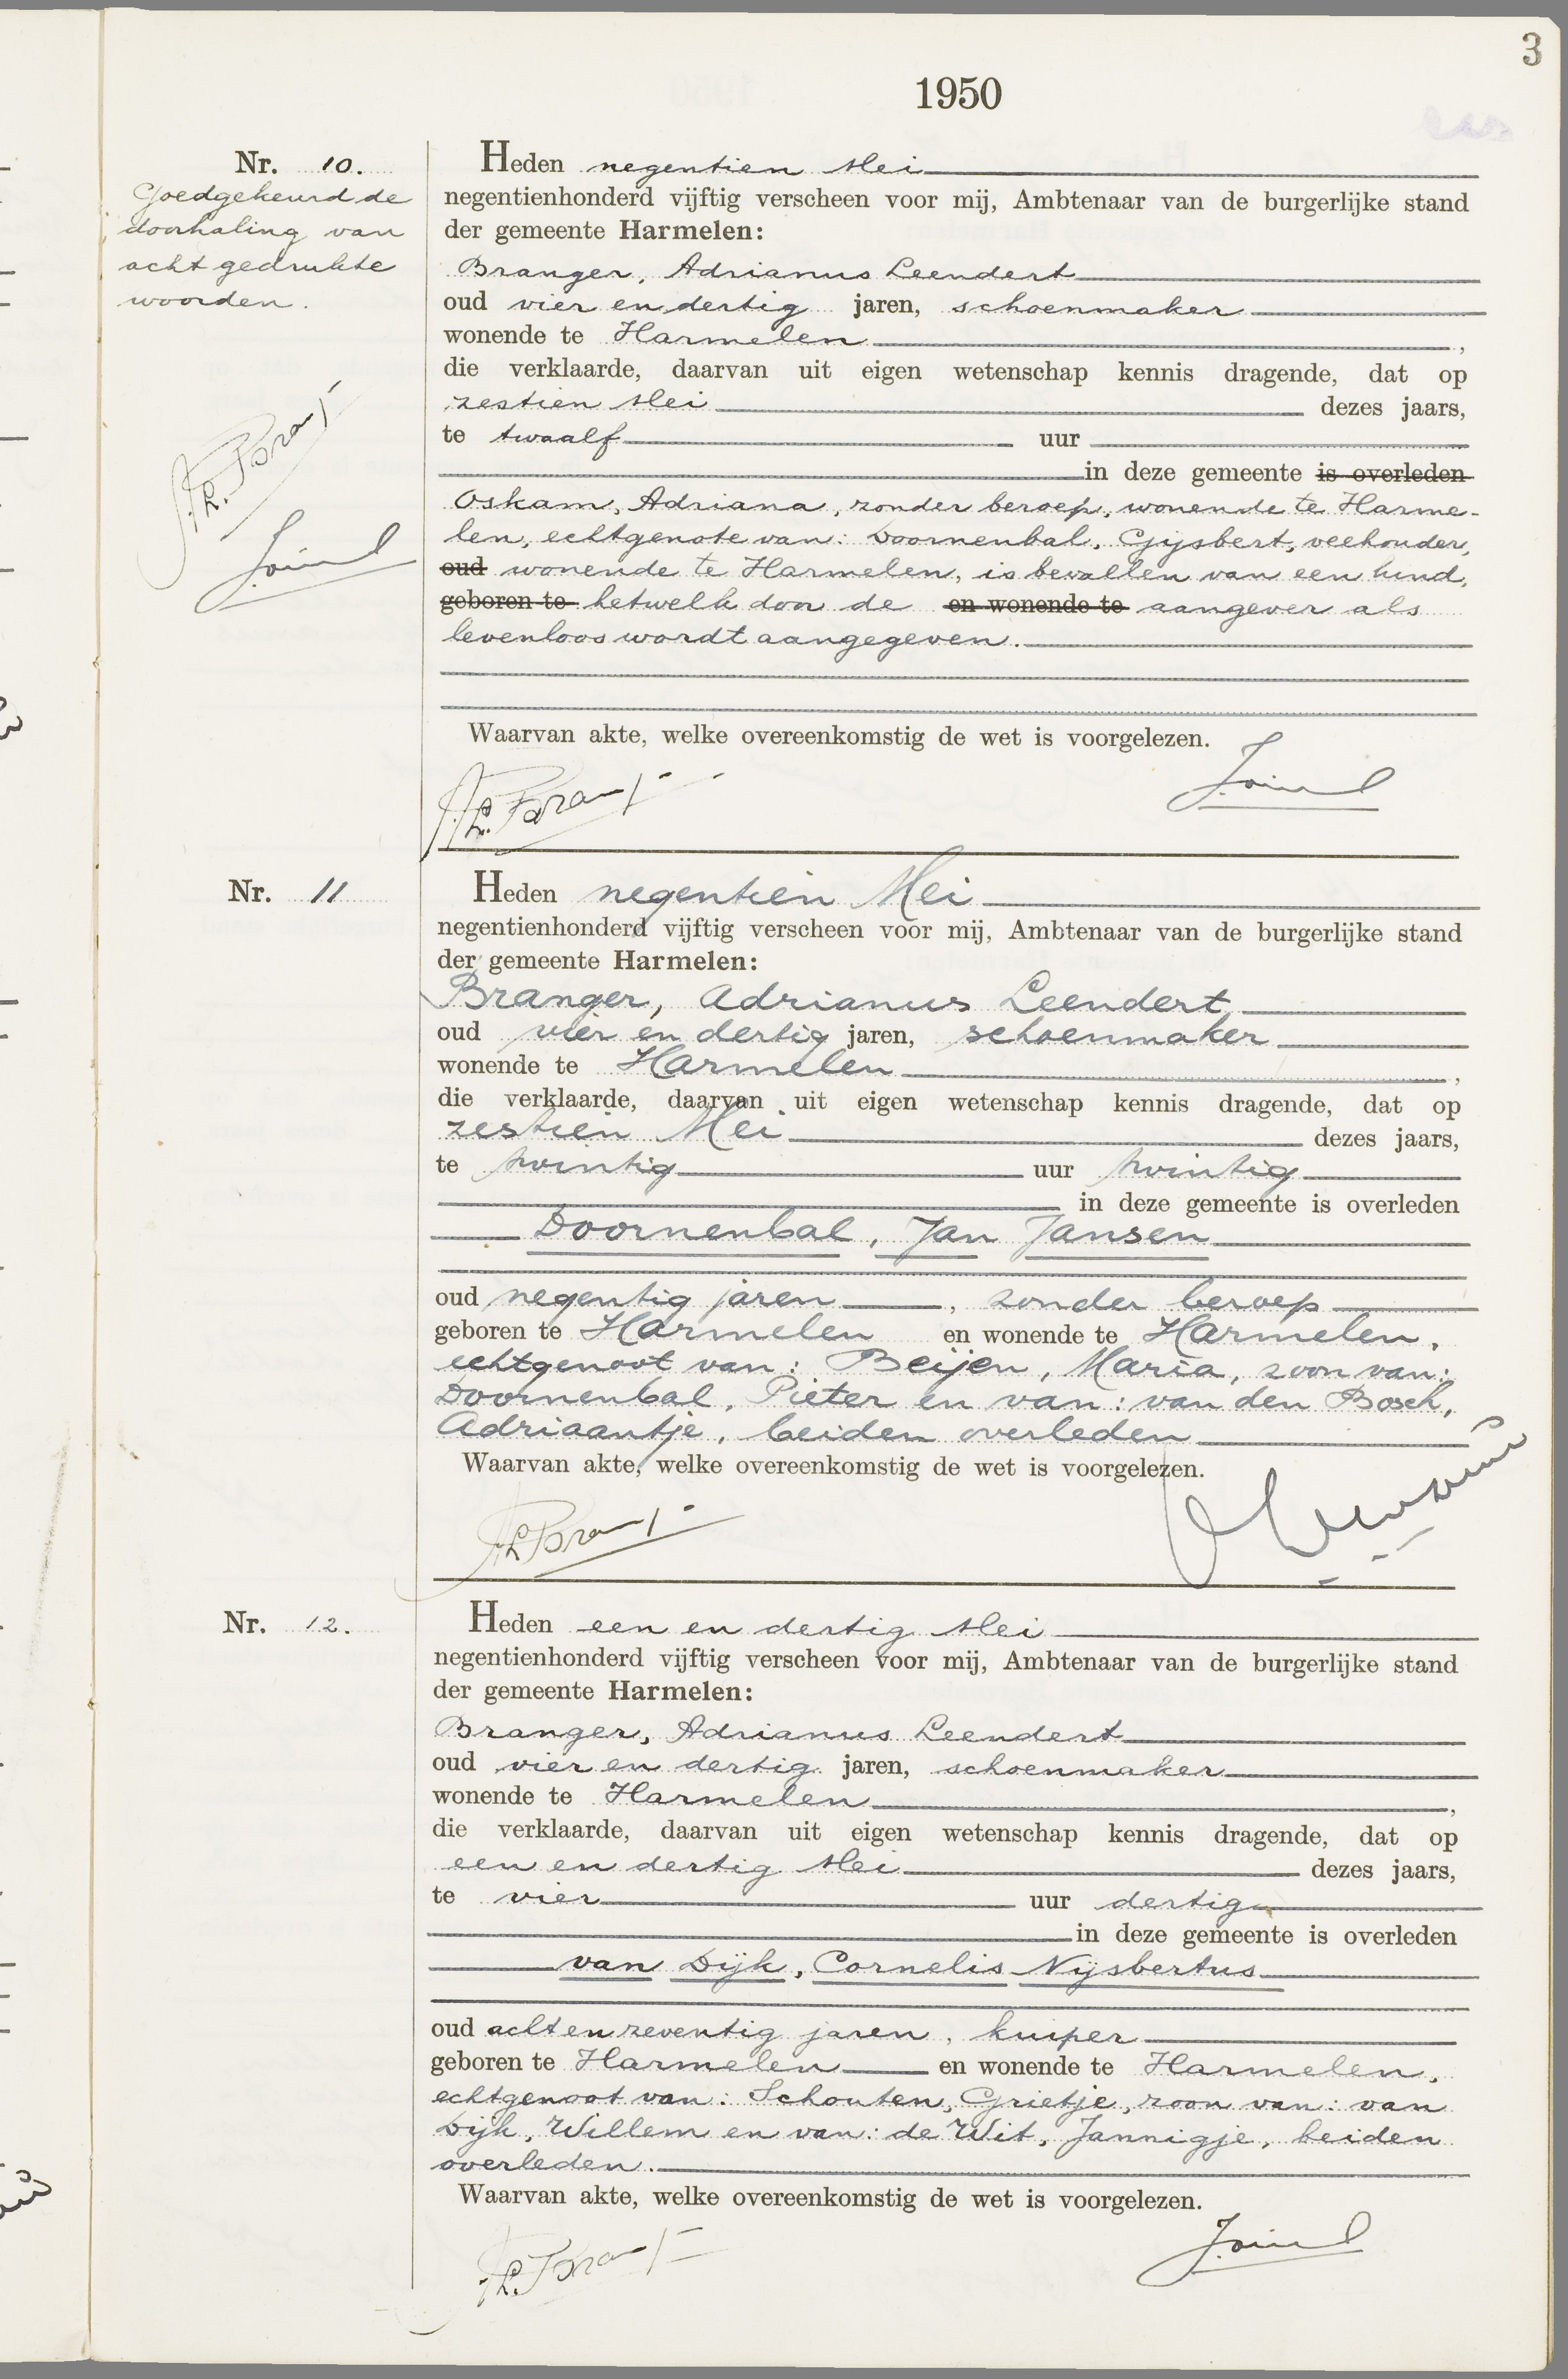 3
1950
Nr. 10.
Goedgekeurd de
doorhaling van
acht gedrukte
woorden.
Heden negentien Mei
negentienhonderd vijftig verscheen voor mij, Ambtenaar van de burgerlijke stand
der gemeente Harmelen:
Branger, Adrianus Leendert
oud vier en dertig jaren, schoenmaker
wonende te Harmelen,
die verklaarde, daarvan uit eigen wetenschap kennis dragende, dat op
zestien Mei dezes jaars,
te twaalf uur
in deze gemeente is overleden
Oskam, Adriana, zonder beroep, wonende te Harme-
len, echtgenote van: Doornenbal, Gijsbert, veehouder,
oud wonende te Harmelen, is bevallen van een kind,
geboren te hetwelk door de en wonende te aangever als
levenloos wordt aangegeven.
Waarvan akte, welke overeenkomstig de wet is voorgelezen.
Nr. 11
Heden negentien Mei
negentienhonderd vijftig verscheen voor mij, Ambtenaar van de burgerlijke stand
der gemeente Harmelen:
Branger, Adrianus Leendert
oud vier en dertig jaren, schoenmaker
wonende te Harmelen,
die verklaarde, daarvan uit eigen wetenschap kennis dragende, dat op
zestien Mei dezes jaars,
te twintig uur twintig
in deze gemeente is overleden
Doornenbal, Jan Jansen
oud negentig jaren, zonder beroep
geboren te Harmelen en wonende te Harmelen,
echtgenoot van: Beijen, Maria, zoon van:
Doornenbal, Pieter en van: van den Bosch,
Adriaantje, beiden overleden
Waarvan akte, welke overeenkomstig de wet is voorgelezen.
Nr. 12.
Heden een en dertig Mei
negentienhonderd vijftig verscheen voor mij, Ambtenaar van de burgerlijke stand
der gemeente Harmelen:
Branger, Adrianus Leendert
oud vier en dertig jaren, schoenmaker
wonende te Harmelen,
die verklaarde, daarvan uit eigen wetenschap kennis dragende, dat op
een en dertig Mei dezes jaars,
te vier uur dertig
in deze gemeente is overleden
van Dijk, Cornelis Nijsbertus
oud acht en zeventig jaren, kuiper
geboren te Harmelen en wonende te Harmelen,
echtgenoot van: Schouten, Grietje, zoon van: van
Dijk, Willem en van: de Wit, Jannigje, beiden
overleden.
Waarvan akte, welke overeenkomstig de wet is voorgelezen.